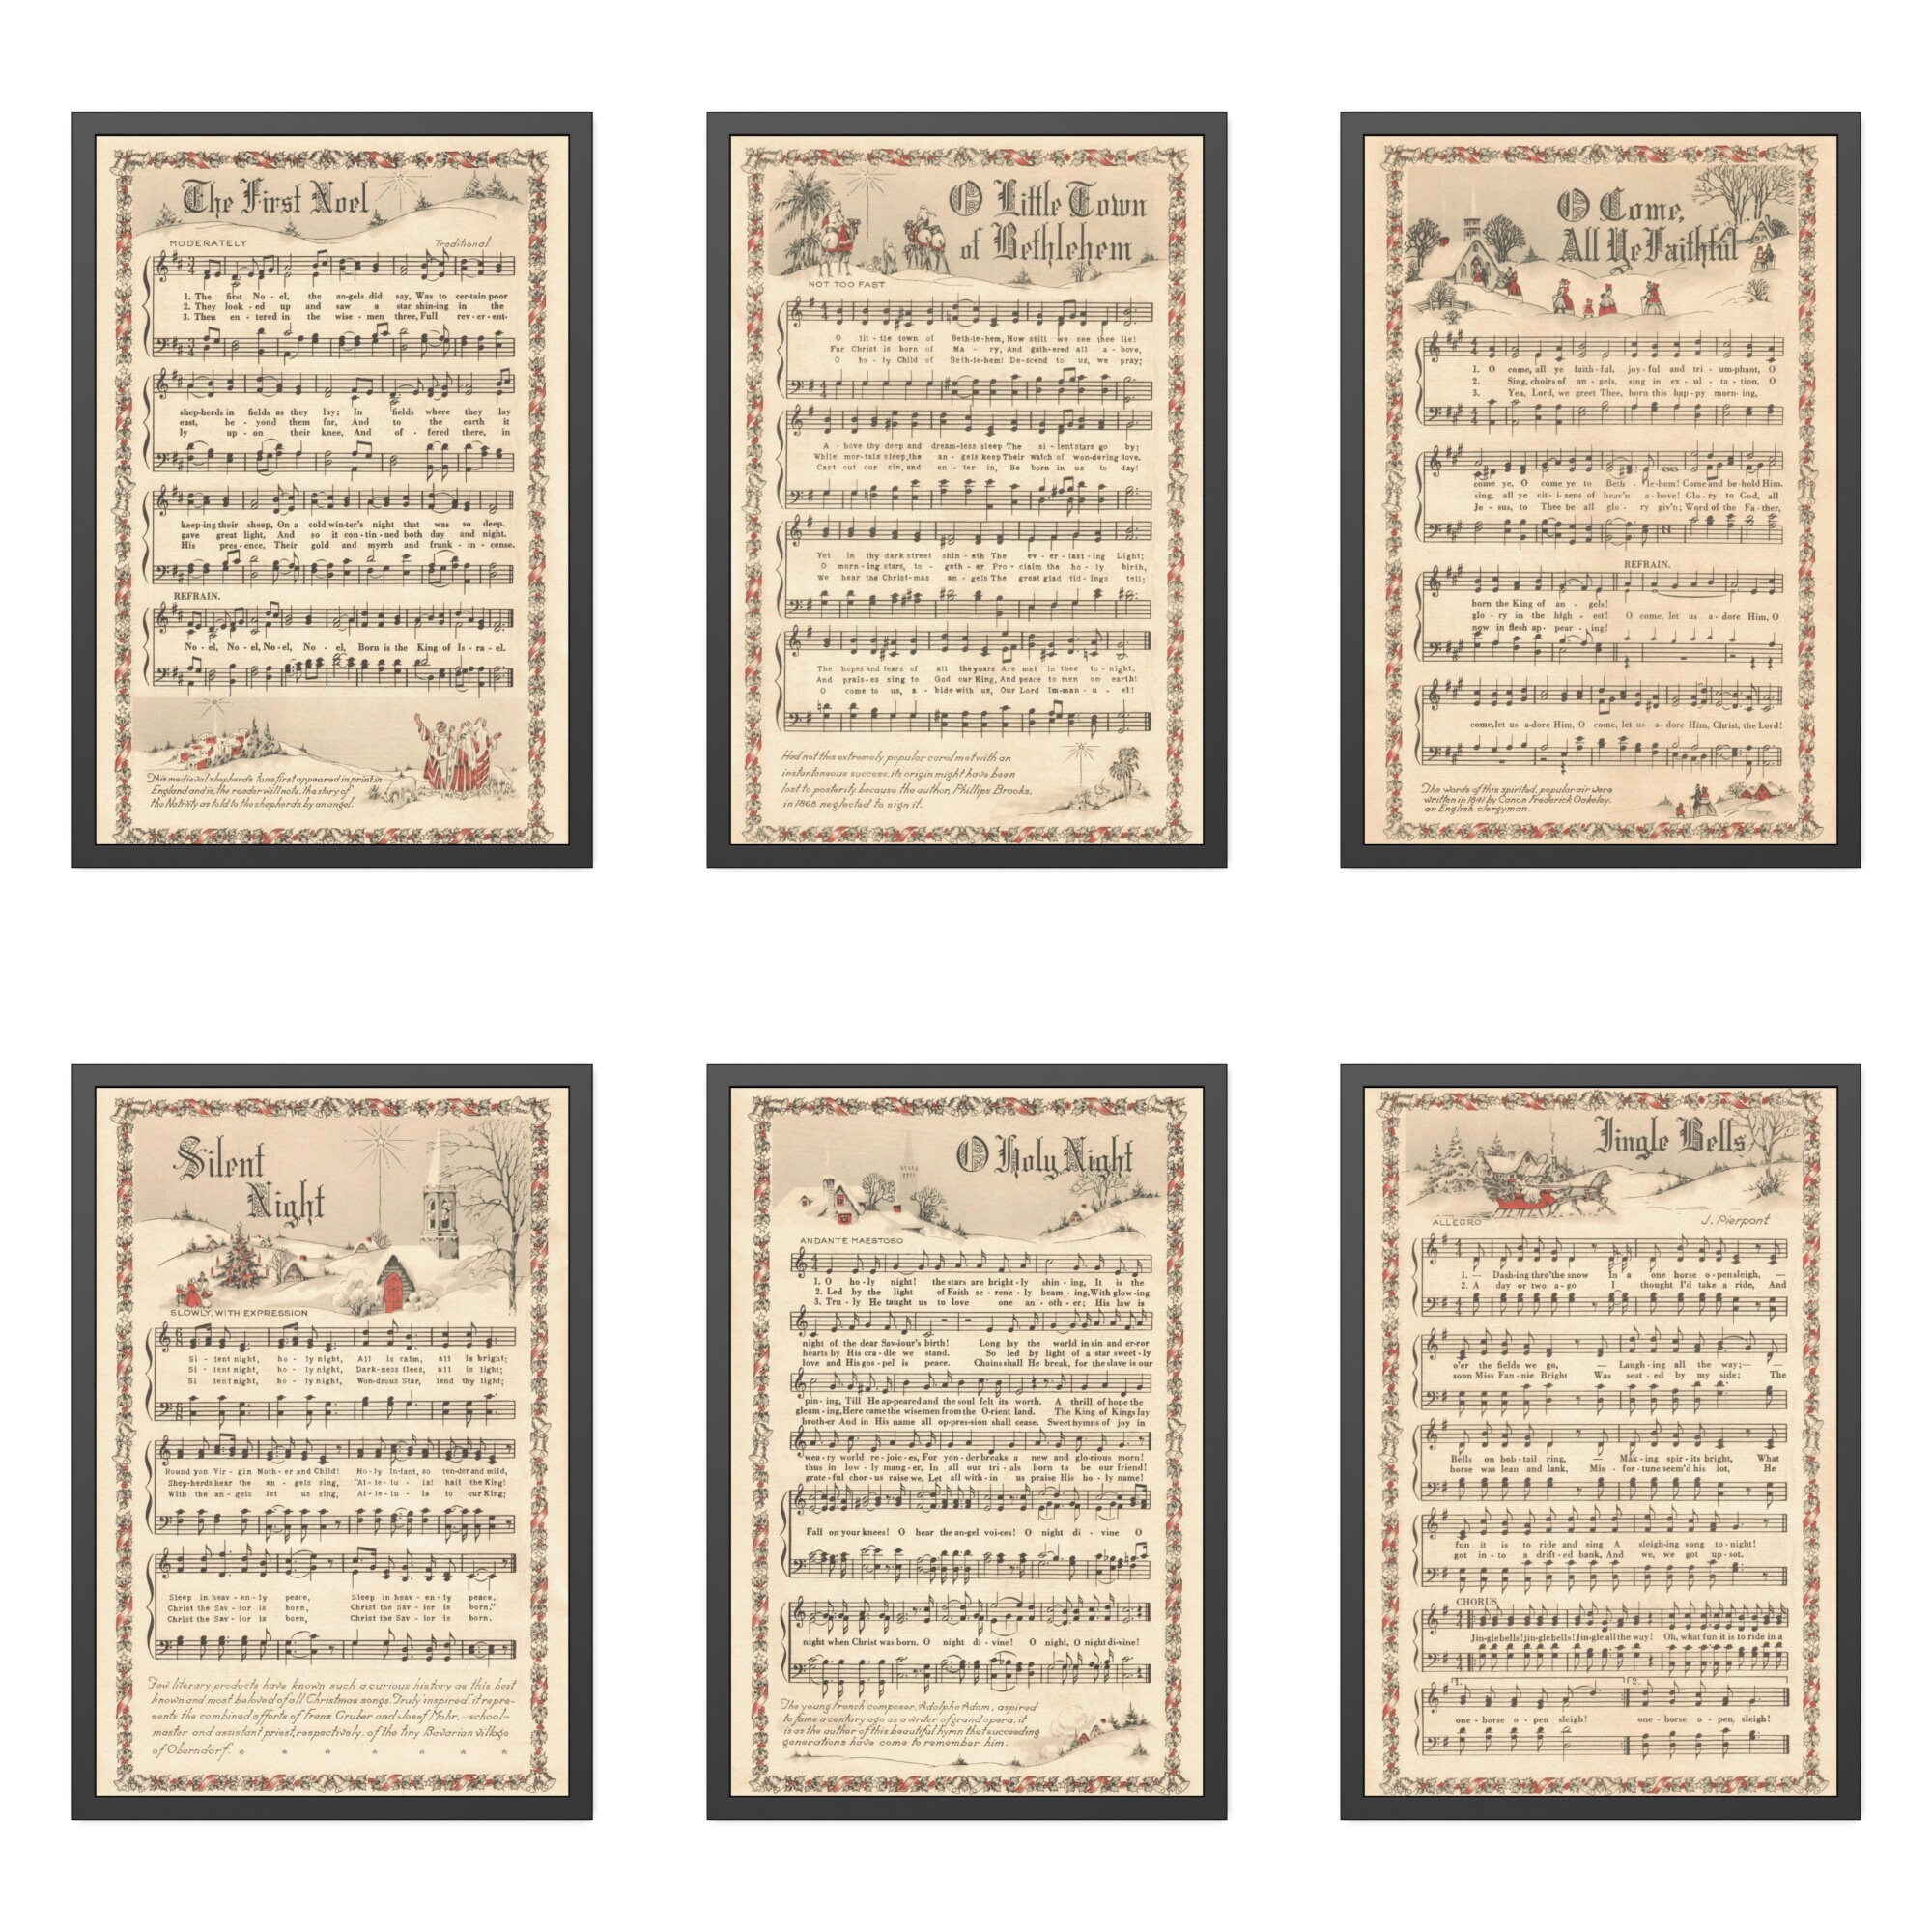 The First Noel
MODERATELY Traditional
1. The first No - el, the an-gels did say, Was to cer-tain poor
2. They look - ed up and saw a star shin-ing in the
3. Then en - tered in the wise - men three, Full rev - er - ent-
shep-herds in fields as they lay; In fields where they lay
east, be - yond them far, And to the earth it
ly up - on their knee, And of - fered there, in
keep-ing their sheep, On a cold win-ter's night that was so deep.
gave great light, And so it con-tin-ued both day and night.
His pres-ence, Their gold and myrrh and frank - in - cense.
REFRAIN.
No - el, No-el, No-el, No - el, Born is the King of Is - ra - el.
This medieval shepherd's tune first appeared in print in
England and is, the reader will note, the story of
the Nativity as told to the shepherds by an angel.
O Little Town
of Bethlehem
NOT TOO FAST
O lit - tle town of Beth-le-hem, How still we see thee lie!
For Christ is born of Ma - ry, And gath-ered all a - bove,
O ho - ly Child of Beth-le-hem! De-scend to us, we pray;
A - bove thy deep and dream-less sleep The si - lent stars go by;
While mor-tals sleep, the an - gels keep Their watch of won-dering love.
Cast out our sin, and en - ter in, Be born in us to day!
Yet in thy dark street shin - eth The ev - er - last - ing Light;
O morn - ing stars, to - geth - er Pro - claim the ho - ly birth,
We hear the Christ-mas an - gels The great glad tid - ings tell;
The hopes and fears of all the years Are met in thee to - night.
And prais-es sing to God our King, And peace to men on earth!
O come to us, a - bide with us, Our Lord Im-man - u - el!
Had not this extremely popular carol met with an
instantaneous success, its origin might have been
lost to posterity because the author, Phillips Brooks,
in 1868 neglected to sign it.
O Come,
All Ye Faithful
1. O come, all ye faith-ful, joy-ful and tri - um-phant, O
2. Sing, choirs of an - gels, sing in ex - ul - ta - tion, O
3. Yea, Lord, we greet Thee, born this hap - py morn - ing,
come ye, O come ye to Beth - le-hem! Come and be-hold Him.
sing, all ye cit - i - zens of heav'n a-bove! Glo - ry to God, all
Je - sus, to Thee be all glo - ry giv'n; Word of the Fa - ther,
REFRAIN.
born the King of an - gels!
glo - ry in the high - est! O come, let us a-dore Him, O
now in flesh ap - pear - ing!
come, let us a-dore Him, O come, let us a- dore Him, Christ, the Lord!
The words of this spirited, popular air were
written in 1841 by Canon Frederick Oakeley,
an English clergyman.
Silent
Night
SLOWLY, WITH EXPRESSION
Si - lent night, ho - ly night, All is calm, all is bright;
Si - lent night, ho - ly night, Dark-ness flees, all is light;
Si lent night, ho - ly night, Won-drous Star, lend thy light;
Round yon Vir - gin Moth - er and Child! Ho - ly In-fant, so ten-der and mild,
Shep-herds hear the an - gels sing, "Al - le - lu - ia! hail the King!
With the an - gels let us sing, Al - le - lu - ia to our King;
Sleep in heav - en - ly peace, Sleep in heav - en - ly peace.
Christ the Sav - ior is born, Christ the Sav - ior is born."
Christ the Sav - ior is born, Christ the Sav - ior is born.
Few literary products have known such a curious history as this best
known and most beloved of all Christmas songs. Truly inspired, it repre-
sents the combined efforts of Franz Gruber and Josef Mohr,—school-
master and assistant priest, respectively, of the tiny Bavarian village
of Oberndorf. * * * * * *
O Holy Night
ANDANTE MAESTOSO
1. O ho - ly night! the stars are bright - ly shin - ing, It is the
2. Led by the light of Faith se - rene - ly beam - ing, With glow - ing
3. Tru - ly He taught us to love one an - oth - er; His law is
night of the dear Sav-iour's birth! Long lay the world in sin and er-ror
hearts by His cra - dle we stand. So led by light of a star sweet - ly
love and His gos - pel is peace. Chains shall He break, for the slave is our
pin - ing, Till He ap-peared and the soul felt its worth. A thrill of hope the
gleam - ing, Here came the wise men from the O-rient land. The King of Kings lay
broth-er And in His name all op-pres-sion shall cease. Sweet hymns of joy in
wea - ry world re - joic - es, For yon - der breaks a new and glo - rious morn!
thus in low - ly mang - er, In all our tri - als born to be our friend!
grate - ful chor - us raise we, Let all with - in us praise His ho - ly name!
Fall on your knees! O hear the an-gel voi-ces! O night di - vine O
night when Christ was born, O night di - vine! O night, O night di-vine!
The young French composer, Adolphe Adam, aspired
to fame a century ago as a writer of grand opera, it
is as the author of this beautiful hymn that succeeding
generations have come to remember him.
Jingle Bells
ALLEGRO J. Pierpont
1. — Dash-ing thro' the snow In a one horse o - pen sleigh, —
2. A day or two a - go I thought I'd take a ride, And
o'er the fields we go, — Laugh - ing all the way; — —
soon Miss Fan - nie Bright Was seat - ed by my side; The
Bells on bob - tail ring, — Mak - ing spir - its bright, What
horse was lean and lank, Mis - for - tune seem'd his lot, He
fun it is to ride and sing A sleigh-ing song to-night!
got in - to a drift - ed bank, And we, we got up - sot.
CHORUS
Jin-gle bells! jin-gle bells! Jin-gle all the way! Oh, what fun it is to ride in a
1. 2.
one - horse o - pen sleigh! one - horse o - pen, sleigh!